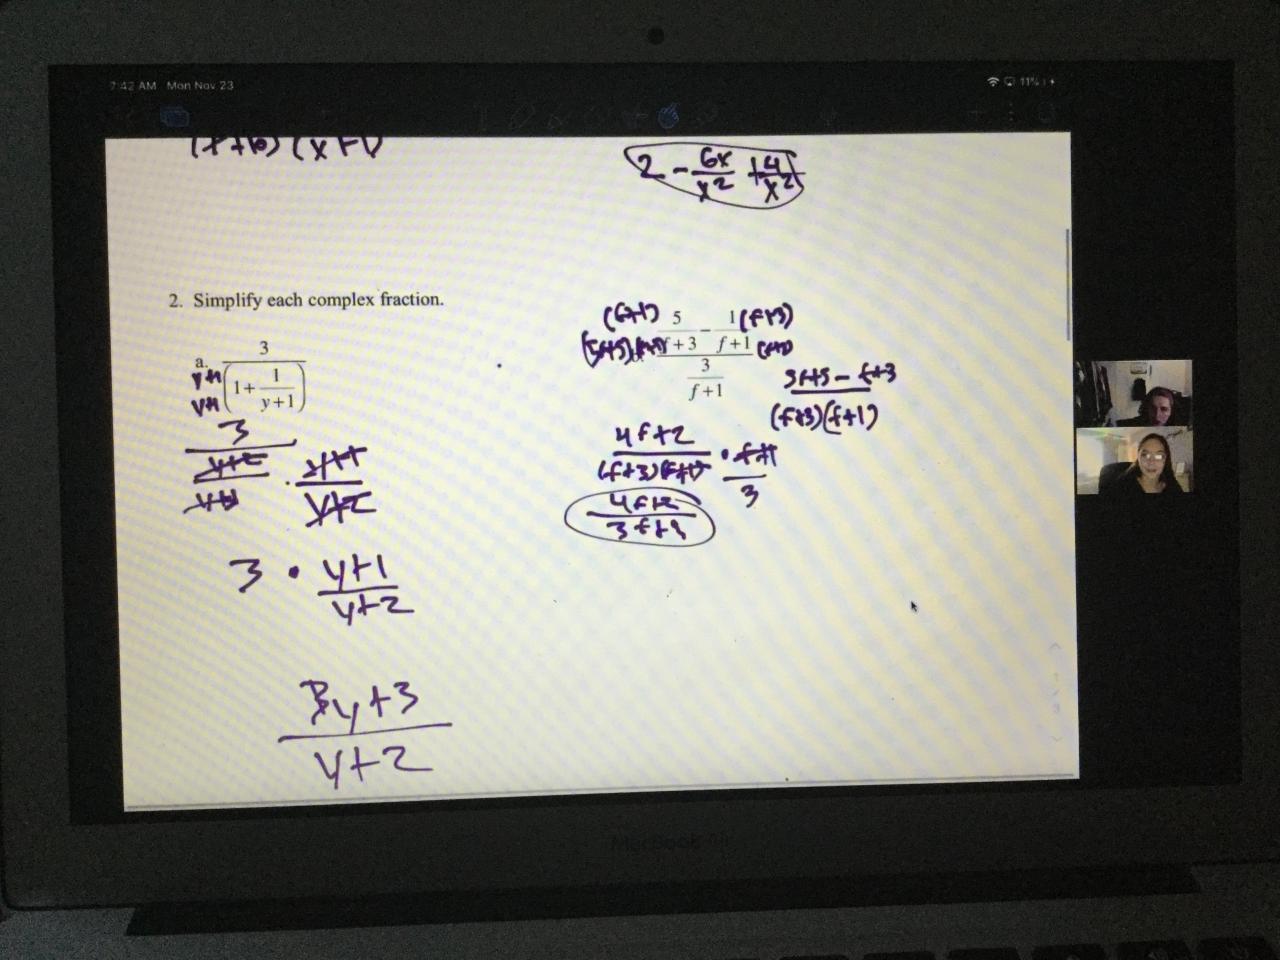 7:42 AM Mon Nov 23
11%
(x+6)(x+1)
2 - 6x/x² + 4/x²
2. Simplify each complex fraction.
a.
3
y+1
y+1
1+ 1/(y+1)
3
y+2 · y+1
y+1 y+2
3 · y+1
y+2
3y+3
y+2
(f+1) 5 - 1 (f+3)
f+3 f+1
3
f+1
5f+5 - f+3
(f+3)(f+1)
4f+2 · f+1
(f+3)(f+1) 3
4f+2
3f+9
MacBook Air